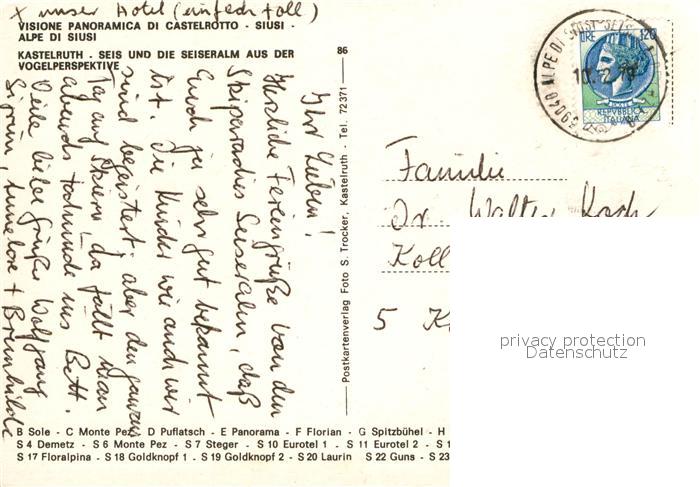 X unser Hotel (einfach toll)
VISIONE PANORAMICA DI CASTELROTTO - SIUSI -
ALPE DI SIUSI
KASTELRUTH - SEIS UND DIE SEISERALM AUS DER
VOGELPERSPEKTIVE
86
Ihr Lieben!
Herzliche Feriengrüße von dem
Skiparadies Seiseralm, daß
Euch ja sehr gut bekannt
ist. Die Kinder wie auch wir
sind begeistert; aber den ganzen
Tag auf Skiern, da fällt man
abends todmüde ins Bett.
Viele liebe Grüße Wolfgang
Sigrun, Annelore + Brunhilde
Postkartenverlag Foto S. Trocker, Kastelruth - Tel. 72371
LIRE 120
REPUBBLICA
ITALIANA
39040 ALPE DI SIUSI - SEISER
Familie
Dr. Walter Koch
Koll
5 K
privacy protection
Datenschutz
B Sole - C Monte Pez - D Puflatsch - E Panorama - F Florian - G Spitzbühel - H
S 4 Demetz - S 6 Monte Pez - S 7 Steger - S 10 Eurotel 1 - S 11 Eurotel 2 - S 1
S 17 Floralpina - S 18 Goldknopf 1 - S 19 Goldknopf 2 - S 20 Laurin S 22 Guns - S 23